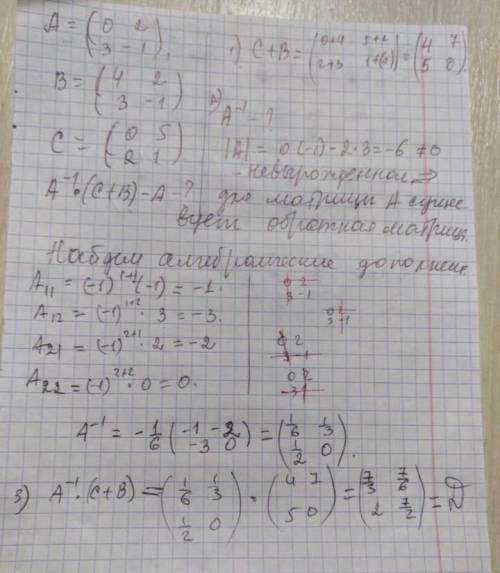 A = (0 2
3 -1),
B = (4 2
3 -1)
C = (0 5
2 1)
A⁻¹·(C+B)-A-?
1) C+B = (0+4 5+2
2+3 1+(-1)) = (4 7
5 0).
2) A⁻¹ - ?
|A| = 0·(-1) - 2·3 = -6 ≠ 0
- невырожденная ⇒
для матрицы A суще
вует обратная матриц.
Найдем алгебраические дополнен.
A₁₁ = (-1)¹⁺¹·(-1) = -1.
A₁₂ = (-1)¹⁺²·3 = -3.
A₂₁ = (-1)²⁺¹·2 = -2
A₂₂ = (-1)²⁺²·0 = 0.
0 2
3 -1
0 2
3 -1
0 2
3 -1
0 2
3 -1
A⁻¹ = -1/6 (-1 -2
-3 0) = (1/6 1/3
1/2 0).
3) A⁻¹·(C+B) = (1/6 1/3
1/2 0) · (4 7
5 0) = (7/3 7/6
2 7/2) = D